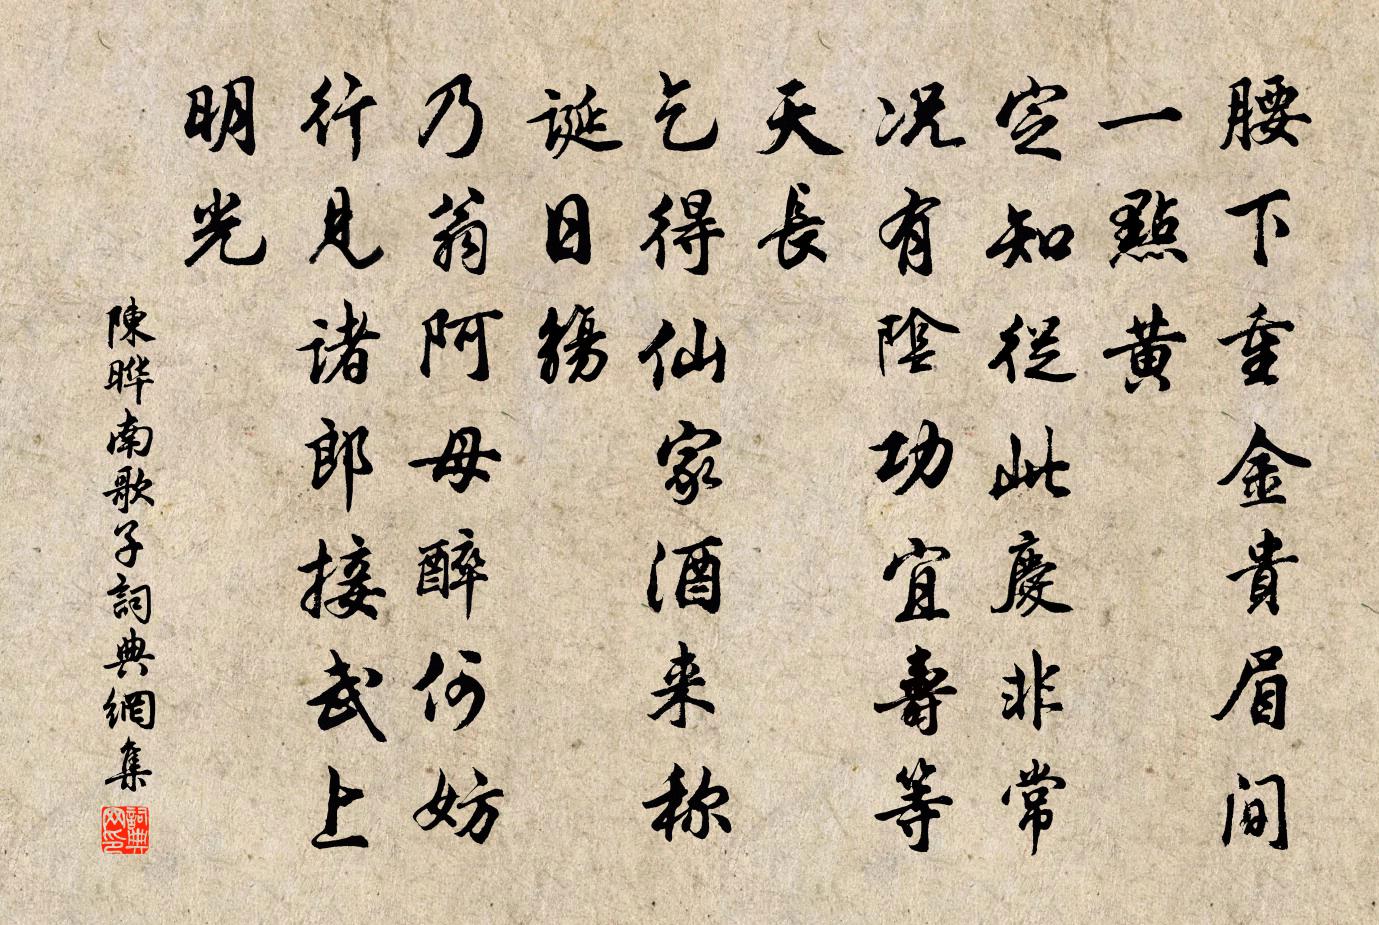 腰下重金貴眉間
一點黃
定知從此慶非常
况有陰功宜壽等
天長
乞得仙家酒来称
誕日觴
乃翁阿母醉何妨
行見諸郎接武上
明光
陳晔南歌子詞典網集
詞典網印